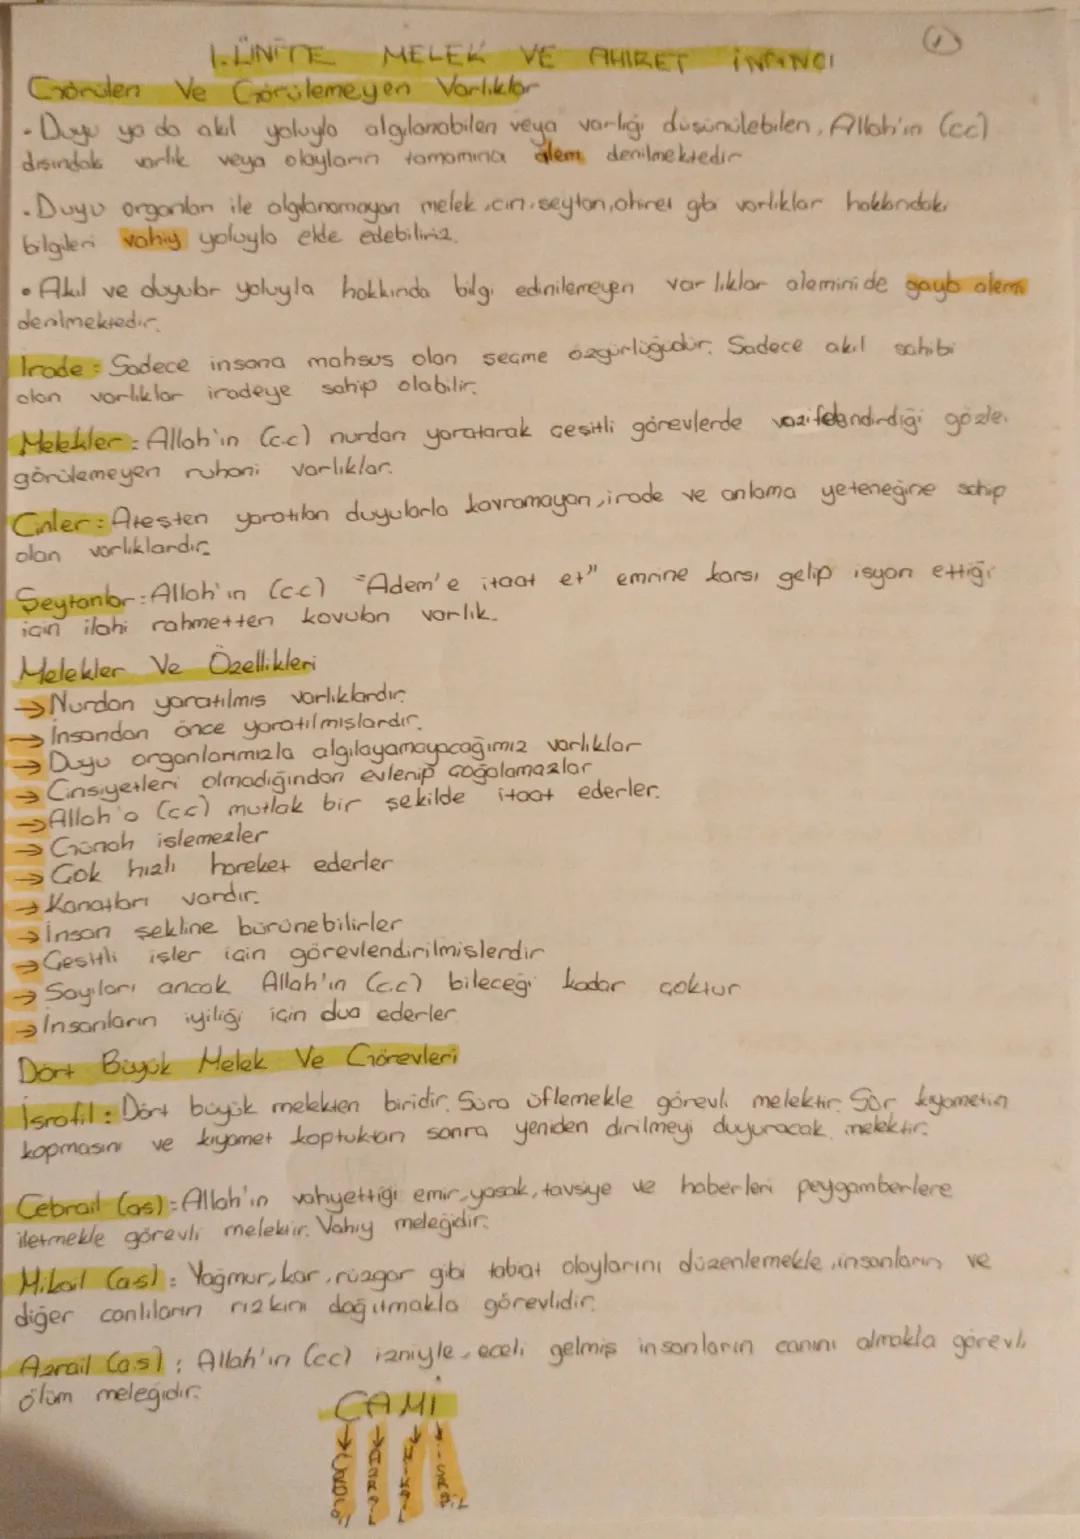 1
1.ÜNİTE MELEK VE AHİRET İNANCI
Görülen Ve Görülemeyen Varlıklar
• Duyu ya da akıl yoluyla algılanabilen veya varlığı düşünülebilen, Allah'ın (cc)
dışındaki varlık veya olayların tamamına alem denilmektedir
• Duyu organları ile algılanamayan melek, cin, şeytan, ahiret gibi varlıklar hakkındaki
bilgileri vahiy yoluyla elde edebiliriz.
• Akıl ve duyular yoluyla hakkında bilgi edinilemeyen varlıklar alemini de gayb alemi
denilmektedir.
İrade: Sadece insana mahsus olan seçme özgürlüğüdür. Sadece akıl sahibi
olan varlıklar iradeye sahip olabilir.
Melekler: Allah'ın (c.c) nurdan yaratarak çeşitli görevlerde vazifelendirdiği gözle
görülemeyen ruhani varlıklar.
Cinler: Ateşten yaratılan duyularla kavramayan, irade ve anlama yeteneğine sahip
olan varlıklardır.
Şeytanlar: Allah'ın (c.c) "Adem'e itaat et" emrine karşı gelip isyan ettiği
için ilahi rahmetten kovulan varlık.
Melekler Ve Özellikleri
→ Nurdan yaratılmış varlıklardır.
→ İnsandan önce yaratılmışlardır.
→ Duyu organlarımızla algılayamayacağımız varlıklar
→ Cinsiyetleri olmadığından evlenip çoğalamazlar
→ Allah'a (c.c) mutlak bir şekilde itaat ederler.
→ Günah işlemezler
→ Çok hızlı hareket ederler
→ Kanatları vardır.
→ İnsan şekline bürünebilirler
→ Çeşitli işler için görevlendirilmişlerdir
→ Sayıları ancak Allah'ın (c.c) bileceği kadar çoktur
→ İnsanların iyiliği için dua ederler
Dört Büyük Melek Ve Görevleri
İsrafil: Dört büyük melekten biridir. Sura üflemekle görevli melektir. Sûr kıyametin
kopmasını ve kıyamet koptuktan sonra yeniden dirilmeyi duyuracak melektir.
Cebrail (as): Allah'ın vahyettiği emir, yasak, tavsiye ve haberleri peygamberlere
iletmekle görevli melektir. Vahiy meleğidir.
Mikail (a.s): Yağmur, kar, rüzgar gibi tabiat olaylarını düzenlemekle, insanların ve
diğer canlıların rızkını dağıtmakla görevlidir.
Azrail (a.s): Allah'ın (cc) izniyle, eceli gelmiş insanların canını almakla görevli
ölüm meleğidir.
CAMİ